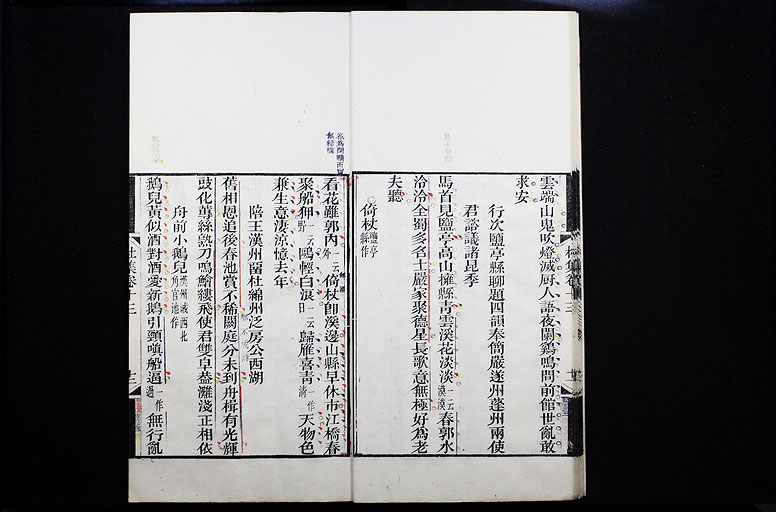 雲端山鬼吹燈滅厨人語夜闌鷄鳴問前館世亂敢
求安
行次鹽亭縣聊題四韻奉簡嚴遂州蓬州兩使
君諮議諸昆季
馬首見鹽亭高山擁縣青雲溪花淡淡一云漠漠春郭水
泠泠全蜀多名士嚴家聚德星長歌意無極好爲老
夫聽
倚杖鹽亭縣作
看花雖郭内一云外倚杖即溪邊山縣早休市江橋春
聚船狎一云野鷗輕白浪一云日歸雁喜青一作清天物色
兼生意凄涼憶去年
陪王漢州畱杜綿州泛房公西湖
舊相恩追後春池賞不稀闕庭分未到舟楫有光輝
豉化蓴絲熟刀鳴鱠縷飛使君雙皂葢灘淺正相依
舟前小鵞兒漢州城西北角官池作
鵞兒黃似酒對酒愛新鵞引頸嗔船逼一作過無行亂
杜集卷十三